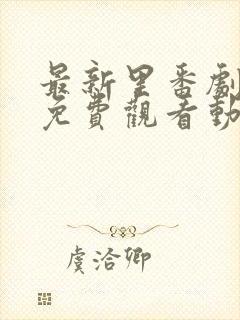 最新里番劇
免費觀看動
虞洽卿